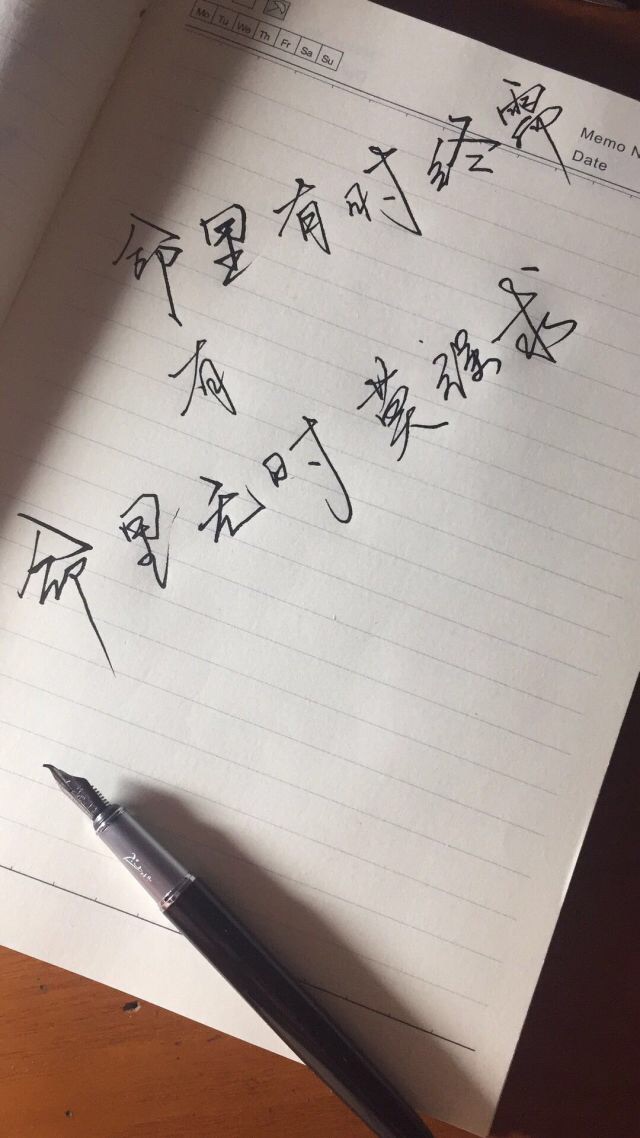 Mo Tu We Th Fr Sa Su
Memo N
Date
命里有时终需
有
命里无时莫强求